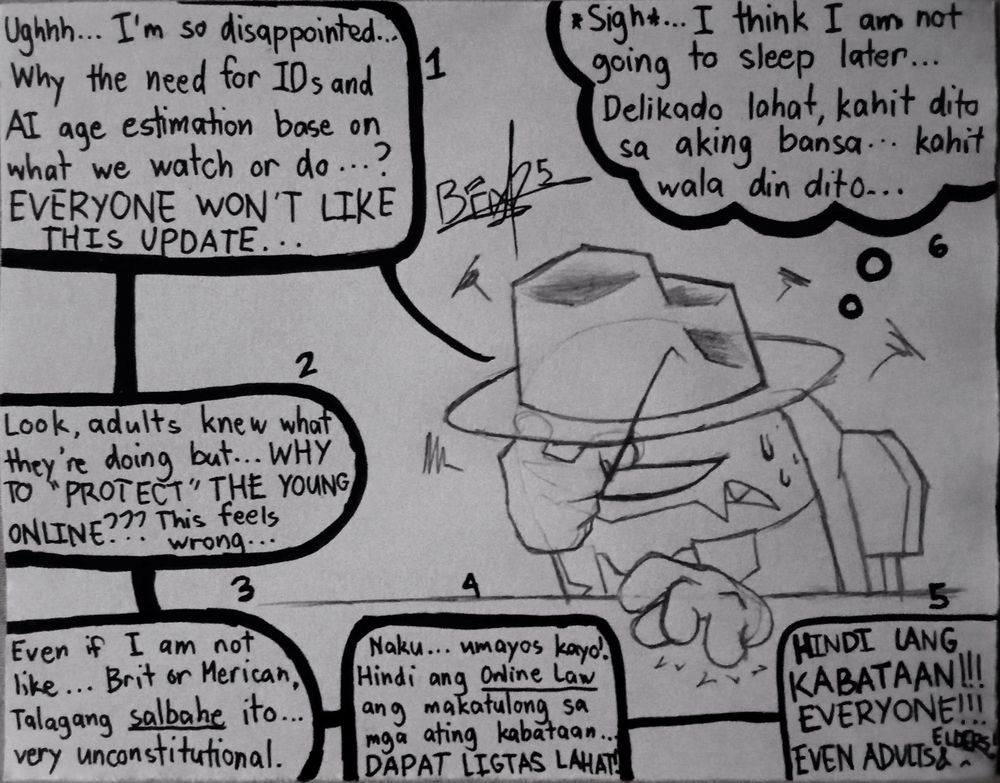 Ughhh... I'm so disappointed...
Why the need for IDs and
AI age estimation base on
what we watch or do...?
EVERYONE WON'T LIKE
THIS UPDATE...
1
2
Look, adults knew what
they're doing but... WHY
TO "PROTECT" THE YOUNG
ONLINE??? This feels
wrong...
3
Even if I am not
like... Brit or Merican,
Talagang salbahe ito...
very unconstitutional.
4
Naku... umayos kayo!
Hindi ang Online Law
ang makatulong sa
mga ating kabataan...
DAPAT LIGTAS LAHAT!
5
HINDI LANG
KABATAAN!!!
EVERYONE!!!
EVEN ADULTS& ELDERS!
*Sigh*... I think I am not
going to sleep later...
Delikado lahat, kahit dito
sa aking bansa... kahit
wala din dito...
6